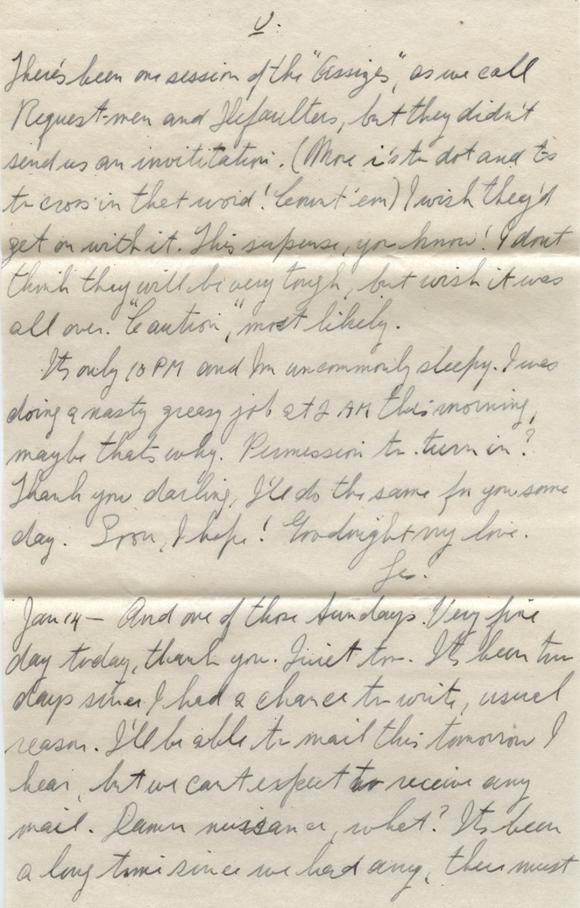 V.
There's been one session of the "Assizes", as we call
Request-men and Defaulters, but they didn't
send us an invititation. (More i's to dot and t's
to cross in that word! Count 'em) I wish they'd
get on with it. This suspense, you know! I dont
think they will be very tough, but wish it was
all over. "Caution", most likely.
Its only 10 PM and Im uncommonly sleepy. I was
doing a nasty greasy job at 2 AM this morning,
maybe thats why. Permission to turn in?
Thank you darling, I'll do the same for you some
day. Soon, I hope! Goodnight my love.
Les.
Jan 14 - And one of those Sundays. Very fine
day today, thank you. Quiet too. Its been two
days since I had a chance to write, usual
reason. I'll be able to mail this tomorrow I
hear, but we cant expect to receive any
mail. Damn nuissance, what? Its been
a long time since we had any, there must